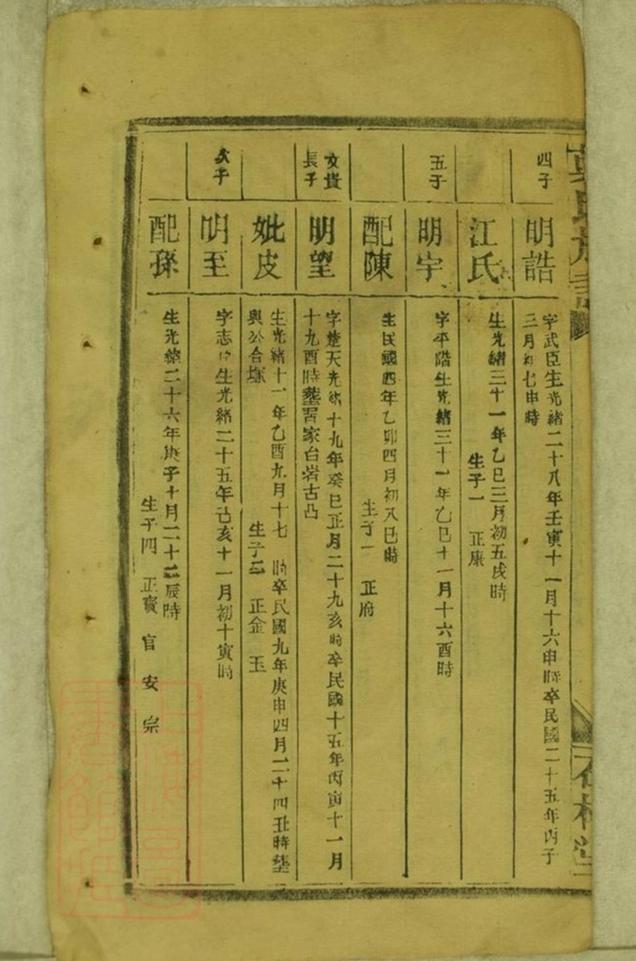 四子
明誥
字武臣生光緒二十八年壬寅十一月十六申時卒民國二十五年丙子
三月初七申時
江氏
生光緒三十一年乙巳三月初五戌時
生子一 正康
五子
明宇
字平階生光緒三十一年乙巳十一月十六酉時
配陳
生民國四年乙卯四月初八巳時
生子一 正府
長子
明望
字楚天光緒十九年癸巳正月二十九亥時卒民國十五年丙寅十一月
十九酉時葬習家台岩古凸
妣皮
生光緒十一年乙酉九月十七 時卒民國九年庚申四月二十四丑時葬
與公合塚
生子二 正金 玉
次子
明至
字志 生光緒二十五年己亥十一月初十寅時
配孫
生光緒二十六年庚子十月二十二辰時
生子四 正寶 官 安 宗
石林堂